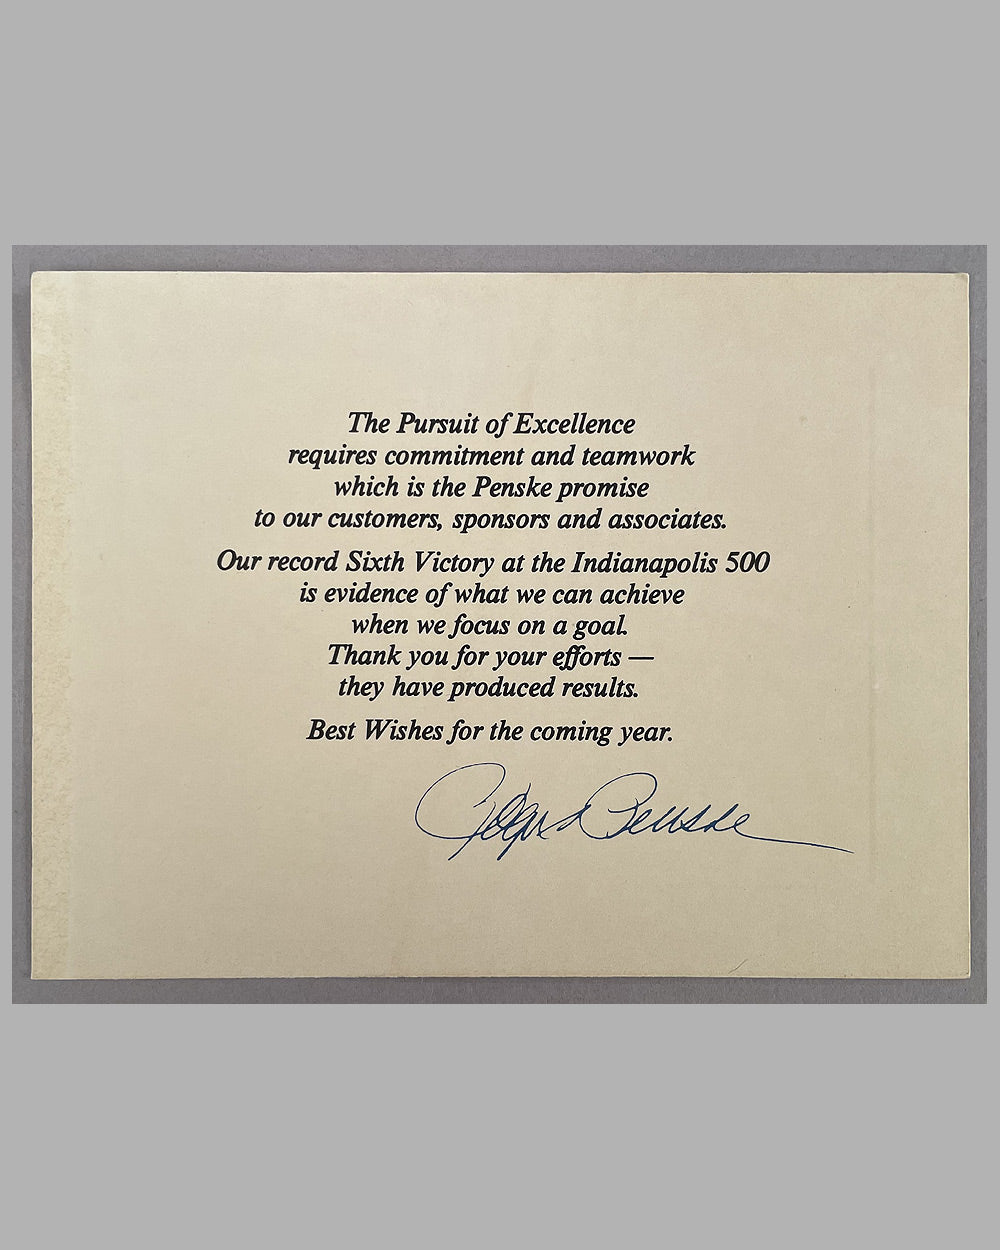 The Pursuit of Excellence
requires commitment and teamwork
which is the Penske promise
to our customers, sponsors and associates.
Our record Sixth Victory at the Indianapolis 500
is evidence of what we can achieve
when we focus on a goal.
Thank you for your efforts —
they have produced results.
Best Wishes for the coming year.
Roger Penske